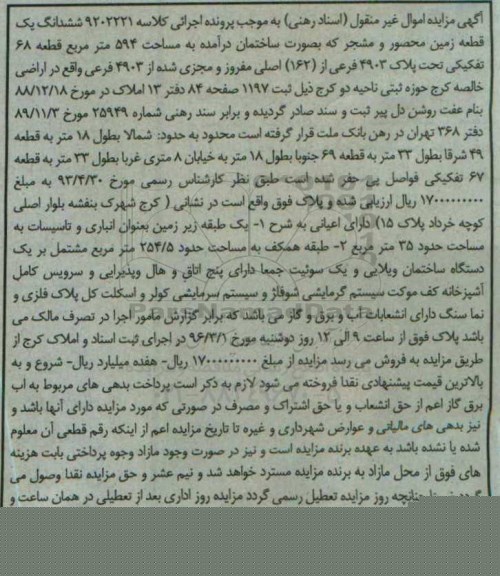 آگهی مزایده اموال غیر منقول (اسناد رهنی) به موجب پرونده اجرائی کلاسه ۹۲۰۲۲۲۱ ششدانگ یک
قطعه زمین محصور و مشجر که بصورت ساختمان درآمده به مساحت ۵۹۴ متر مربع قطعه ۶۸
تفکیکی تحت پلاک ۴۹۰۳ فرعی از (۱۶۲) اصلی مفروز و مجزی شده از ۴۹۰۳ فرعی واقع در اراضی
خالصه کرج حوزه ثبتی ناحیه دو کرج ذیل ثبت ۱۱۹۷ صفحه ۸۴ دفتر ۱۳ املاک در مورخ ۸۸/۱۲/۱۸
بنام عفت روشن دل پیر ثبت و سند صادر گردیده و برابر سند رهنی شماره ۲۵۹۴۹ مورخ ۸۹/۱۱/۳
دفتر ۳۶۸ تهران در رهن بانک ملت قرار گرفته است محدود به حدود: شمالا بطول ۱۸ متر به قطعه
۴۹ شرقا بطول ۳۳ متر به قطعه ۶۹ جنوبا بطول ۱۸ متر به خیابان ۸ متری غربا بطول ۳۳ متر به قطعه
۶۷ تفکیکی فواصل پی حفر شده است طبق نظر کارشناس رسمی مورخ ۹۳/۴/۳۰ به مبلغ
۱۷۰۰۰۰۰۰۰۰۰ ریال ارزیابی شده و پلاک فوق واقع است در نشانی ( کرج شهرک بنفشه بلوار اصلی
کوچه خرداد پلاک ۱۵) دارای اعیانی به شرح ۱- یک طبقه زیر زمین بعنوان انباری و تاسیسات به
مساحت حدود ۳۵ متر مربع ۲- طبقه همکف به مساحت حدود ۲۵۴/۵ متر مربع مشتمل بر یک
دستگاه ساختمان ویلایی و یک سوئیت جمعا دارای پنج اتاق و هال وپذیرایی و سرویس کامل
آشپزخانه کف موکت سیستم گرمایشی شوفاژ و سیستم سرمایشی کولر و اسکلت کل پلاک فلزی و
نما سنگ دارای انشعابات آب و برق و گاز می باشد که برابر گزارش مامور اجرا در تصرف مالک می
باشد پلاک فوق از ساعت ۹ الی ۱۲ روز دوشنبه مورخ ۹۶/۳/۱ در اجرای ثبت اسناد و املاک کرج از
طریق مزایده به فروش می رسد مزایده از مبلغ ۱۷۰۰۰۰۰۰۰۰۰ ریال- هفده میلیارد ریال- شروع و به
بالاترین قیمت پیشنهادی نقدا فروخته می شود لازم به ذکر است پرداخت بدهی های مربوط به آب
برق گاز اعم از حق انشعاب و یا حق اشتراک و مصرف در صورتی که مورد مزایده دارای آنها باشد و
نیز بدهی های مالیاتی و عوارض شهرداری و غیره تا تاریخ مزایده اعم از اینکه رقم قطعی آن معلوم
شده یا نشده باشد به عهده برنده مزایده است و نیز در صورت وجود مازاد وجوه پرداختی بابت هزینه
های فوق از محل مازاد به برنده مزایده مسترد خواهد شد و نیم عشر و حق مزایده نقدا وصول می
چنانچه روز مزایده تعطیل رسمی گردد مزایده روز اداری بعد از تعطیلی در همان ساعت و